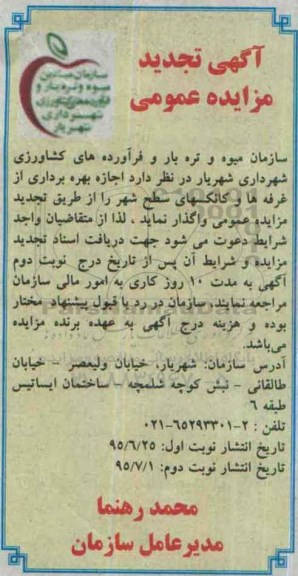 آگهی تجدید
مزایده عمومی
سازمان میادین
میوه و تره بار و
فرآورده‌های کشاورزی
شهرداری
شهریار
سازمان میوه و تره بار و فرآورده های کشاورزی
شهرداری شهریار در نظر دارد اجازه بهره برداری از
غرفه ها و کانکسهای سطح شهر را از طریق تجدید
مزایده عمومی واگذار نماید ، لذا از متقاضیان واجد
شرایط دعوت می شود جهت دریافت اسناد تجدید
مزایده و شرایط آن پس از تاریخ درج نوبت دوم
آگهی به مدت ۱۰ روز کاری به امور مالی سازمان
مراجعه نمایند. سازمان در رد یا قبول پیشنهاد مختار
بوده و هزینه درج آگهی به عهده برنده مزایده
می‌باشد.
آدرس سازمان: شهریار، خیابان ولیعصر – خیابان
طالقانی – نبش کوچه شلمچه – ساختمان ایساتیس
طبقه ۶
تلفن : ۲-۶۵۲۹۳۳۰۱-۰۲۱
تاریخ انتشار نوبت اول: ۹۵/۶/۲۵
تاریخ انتشار نوبت دوم: ۹۵/۷/۱
محمد رهنما
مدیرعامل سازمان